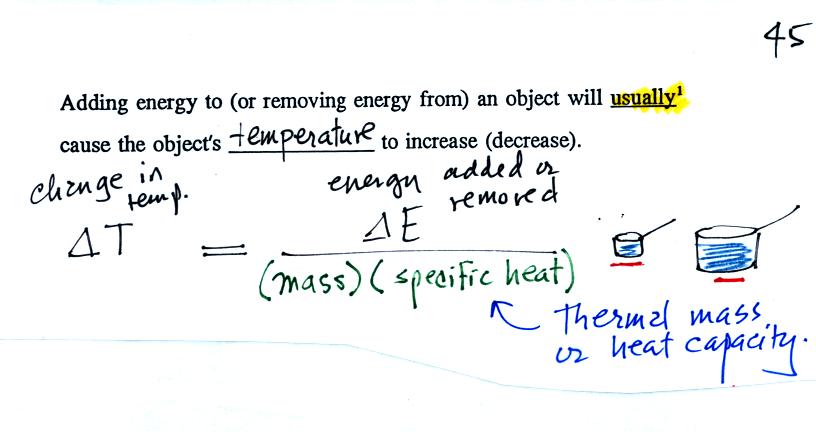 45
Adding energy to (or removing energy from) an object will usually¹
cause the object's temperature to increase (decrease).
change in temp.
energy added or removed
ΔT = ΔE
(mass) (specific heat)
Thermal mass
or heat capacity.